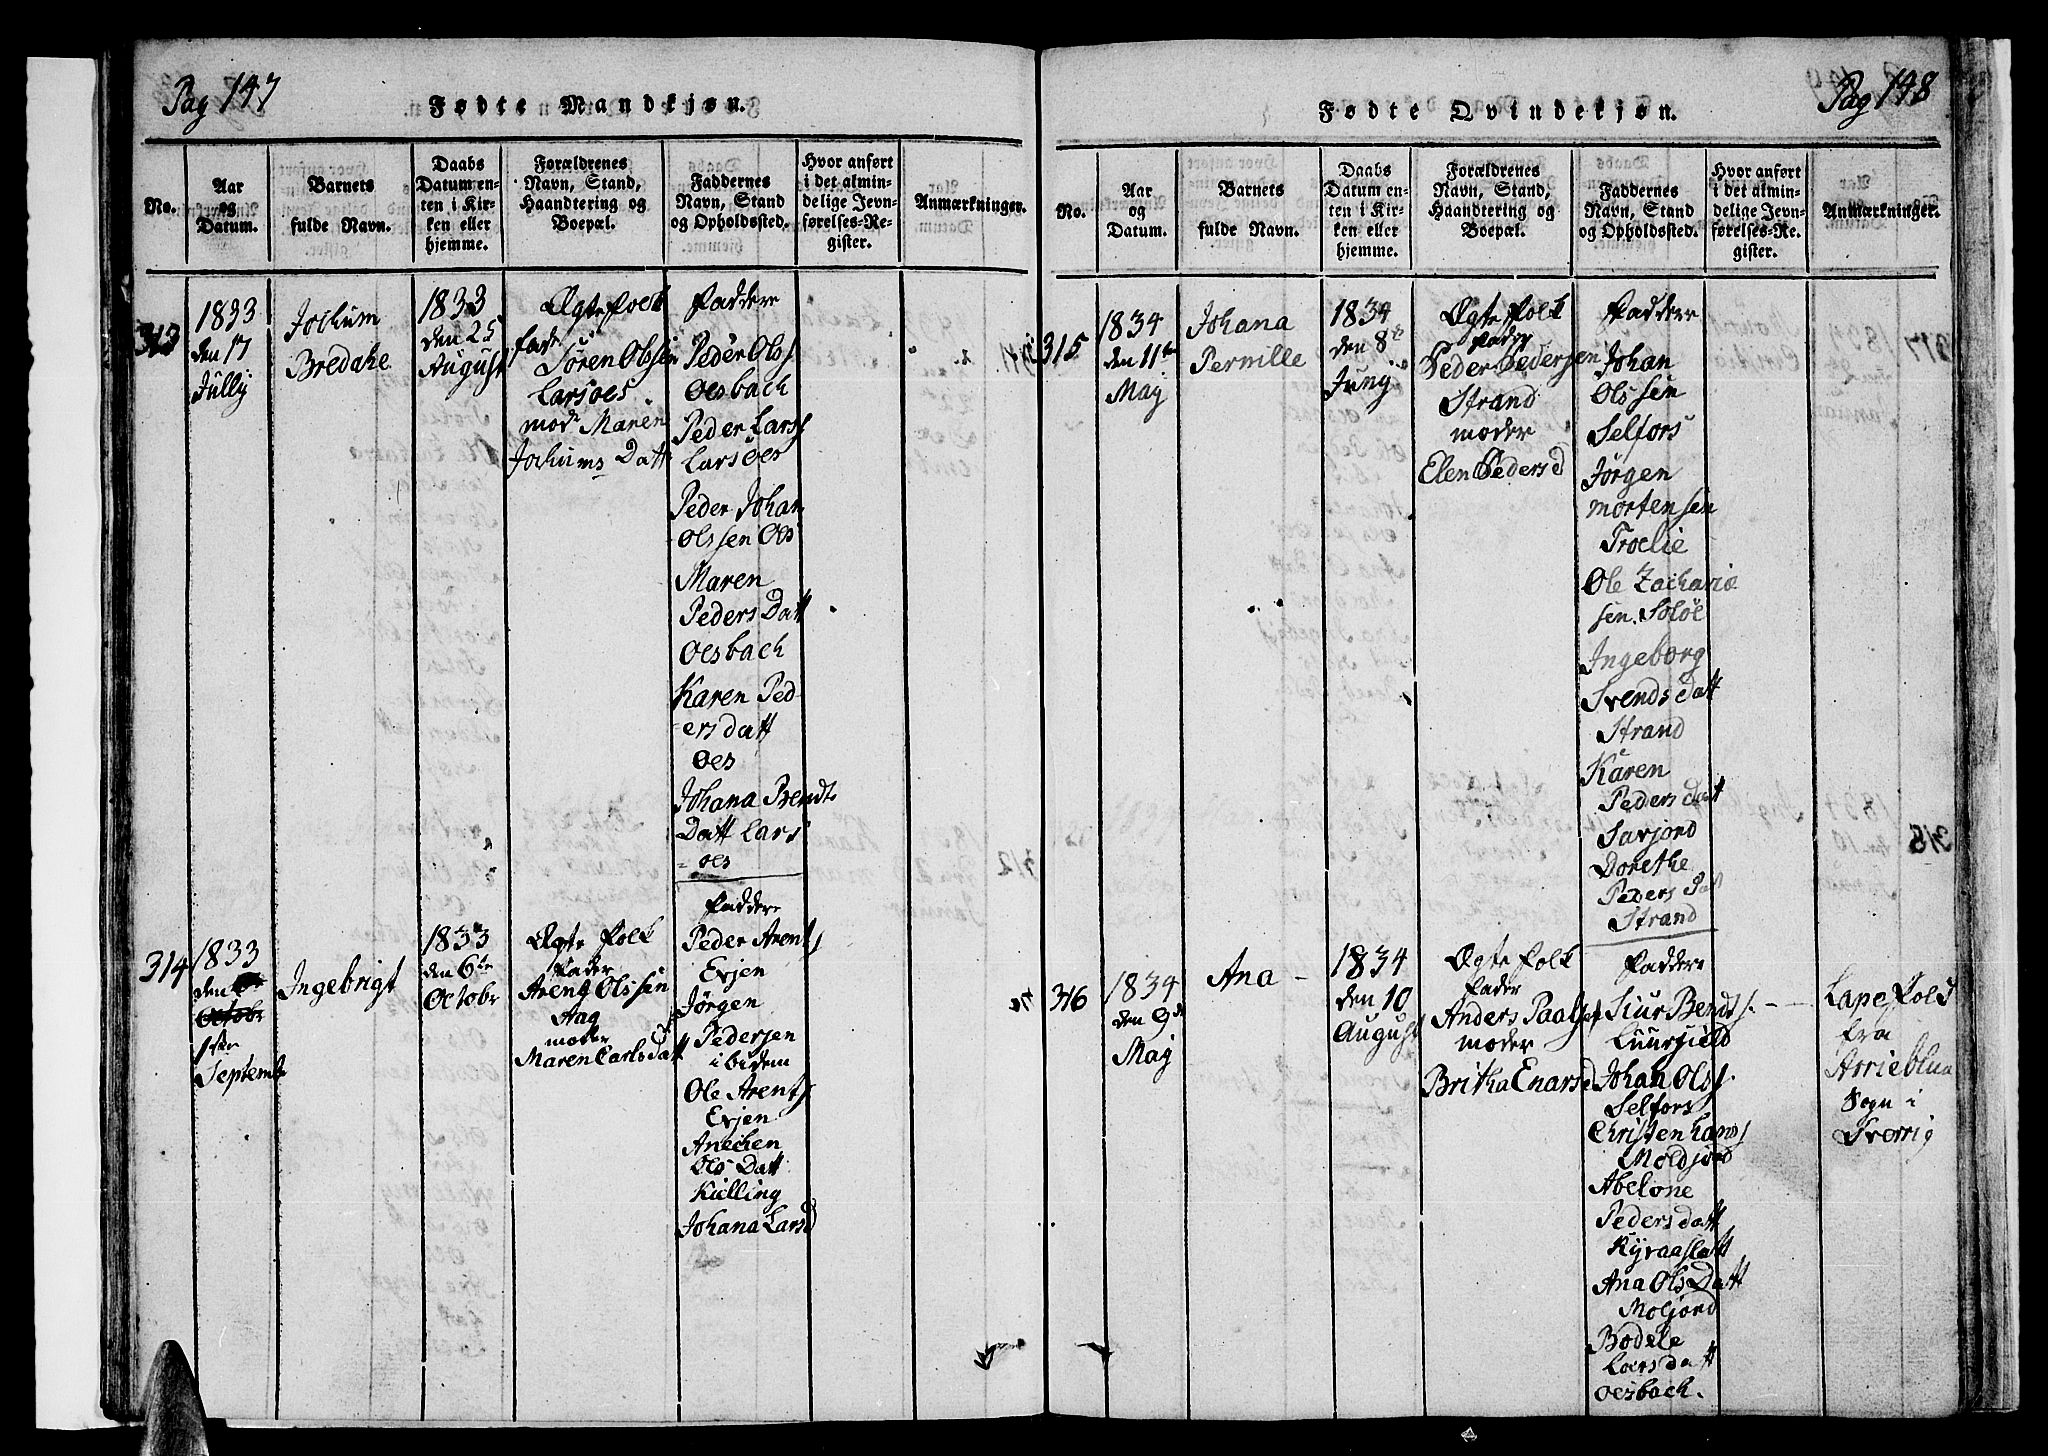 Pag 147
Fødte Mandkjøn.
No.
Aar
og
Datum.
Barnets
fulde Navn.
Daabs
Datum en-
ten i Kir-
ken eller
hjemme.
Forældrenes
Navn, Stand,
Haandtering og
Boepæl.
Faddernes
Navn, Stand
og Opholdssted.
Hvor anført
i det almin-
delige Jevn-
førelses-Re-
gister.
Anmærkninger.
313
1833
den 17
Jully
Jochum
Bredahe
1833
den 25
August
Ægte Folk
fadr
Sören Olssen
Larsoes
modr Maren
Jochums Datt
Faddere
Peder Olss
Oesbach
Peder Larss
Larsoes
Peder Johan
Olssen Oes
Maren
Peders Datt
Oesbach
Karen Ped-
ersdatt
Oes
Johana Bendts
Datt Lars
=oes
314
1833
den
Octobr
1ster
Septemb
Ingebrigt
1833
den 6te
Octobr
Ægte Folk
Fader
Arent Olssen
Aag
moder
Maren Carlsdatt
Faddere
Peder Arents
Evjen
Jørgen
Pedersen
ibidem
Ole Arents
Evjen
Anechen
Ols Datt
Kulling
Johana Larsd
Pag 148
Fødte Qvindekjøn.
No.
Aar
og
Datum.
Barnets
fulde Navn.
Daabs
Datum en-
ten i Kir-
ken eller
hjemme.
Forældrenes
Navn, Stand,
Haandtering og
Boepæl.
Faddernes
Navn, Stand
og Opholdssted.
Hvor anført
i det almin-
delige Jevn-
førelses-Re-
gister.
Anmærkninger.
315
1834
den 11te
May
Johana
Pernille
1834
den 8de
Juny
Ægte Folk
Fader
Peder Pedersen
Strand
moder
Elen Pedersd
Faddere
Johan
Olssen
Selfors
Jørgen
mortensen
Troelie
Ole Zacharia
sen. Soløe
Ingeborg
Svends datt
Strand
Karen
Peders datt
Savjord
Dorethe
Peders Dat
Strand
316
1834
den 9de
May
Ana
1834
den 10
August
Ægte Folk
Fader
Anders Paals
moder
Britha Enarsd
Faddere
Siur Bendts.
Luurfield
Johan Olss
Selfors
Christen Hans
Moldjord
Abelone
Peders datt
Kyraaslatt
Ana Ols Datt
Moljord
Bodele
Larsdatt
Oesbach.
Lape Folk
fra
Aorieblua
Sogn i
Sverrig